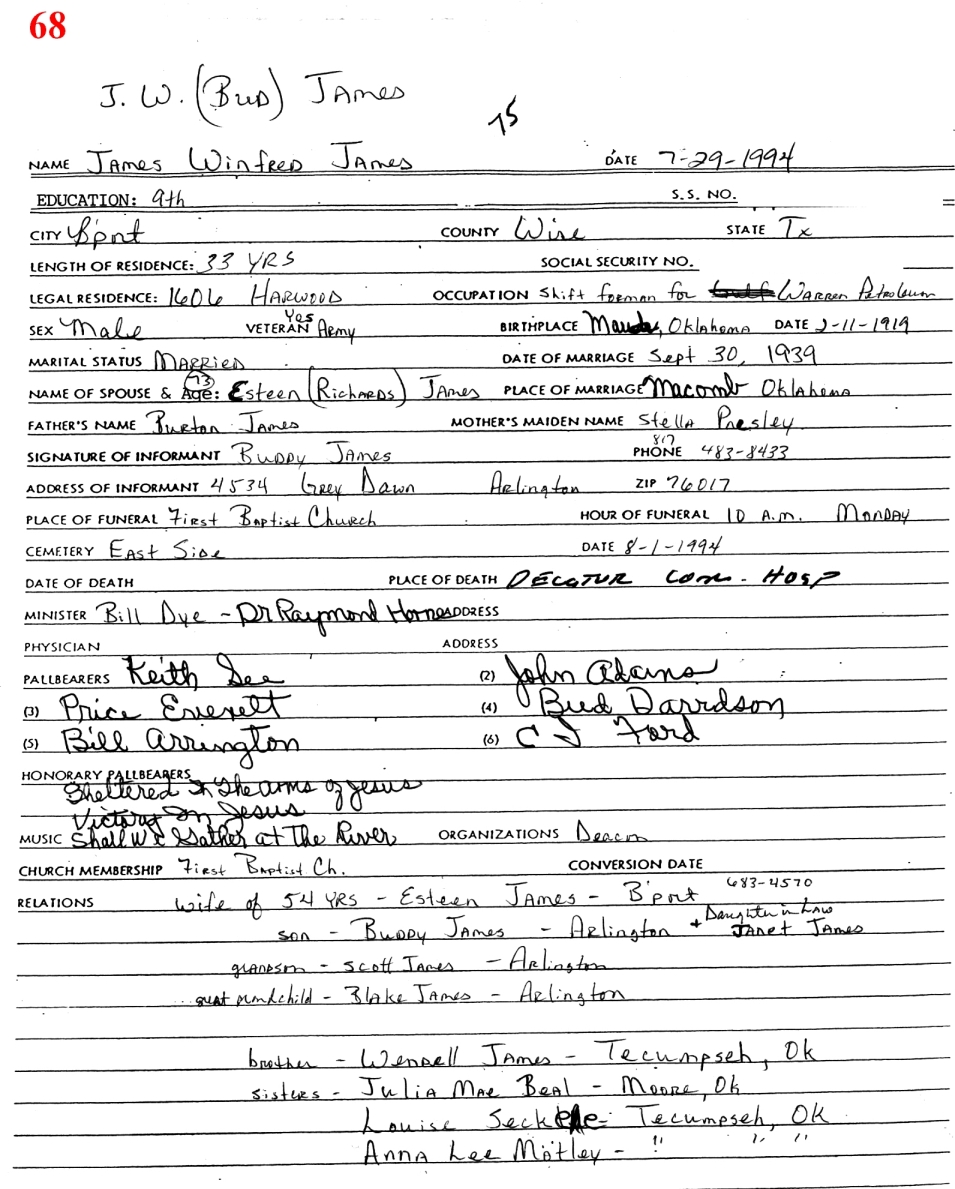 68
J. W. (Bud) James
75
NAME James Winfred James DATE 7-29-1994
EDUCATION: 9th S.S. NO.
CITY B'port COUNTY Wise STATE Tx
LENGTH OF RESIDENCE: 33 YRS SOCIAL SECURITY NO.
LEGAL RESIDENCE: 1606 Harwood OCCUPATION Shift forman for Warren Petroleum
SEX Male VETERAN Yes Army BIRTHPLACE Oklahoma DATE 2-11-1919
MARITAL STATUS Married DATE OF MARRIAGE Sept 30, 1939
NAME OF SPOUSE & Age: 73 Esteen (Richards) James PLACE OF MARRIAGE Macomb Oklahoma
FATHER'S NAME Burton James MOTHER'S MAIDEN NAME Stella Presley
SIGNATURE OF INFORMANT Buddy James PHONE 817 483-8433
ADDRESS OF INFORMANT 4534 Grey Dawn Arlington ZIP 76017
PLACE OF FUNERAL First Baptist Church HOUR OF FUNERAL 10 A.m. Monday
CEMETERY East Side DATE 8-1-1994
DATE OF DEATH PLACE OF DEATH DECATUR Com. HOSP
MINISTER Bill Dye - Dr Raymond Horne ADDRESS
PHYSICIAN ADDRESS
PALLBEARERS Keith See (2) John Adams
(3) Price Everett (4) Bud Davidson
(5) Bill Arrington (6) C J Ford
HONORARY PALLBEARERS
Sheltered In The arms of Jesus
Victory In Jesus
MUSIC Shall We Gather at The River ORGANIZATIONS Deacon
CHURCH MEMBERSHIP First Baptist Ch. CONVERSION DATE
RELATIONS wife of 54 YRS - Esteen James - B'port 683-4570
son - Buddy James - Arlington + Daughter in Law Janet James
grandson - Scott James - Arlington
great grandchild - Blake James - Arlington
brother - Wendell James - Tecumpseh, Ok
sisters - Julia Mae Beal - Moore, Ok
Louise - Tecumpseh, OK
Anna Lee Motley - " " "